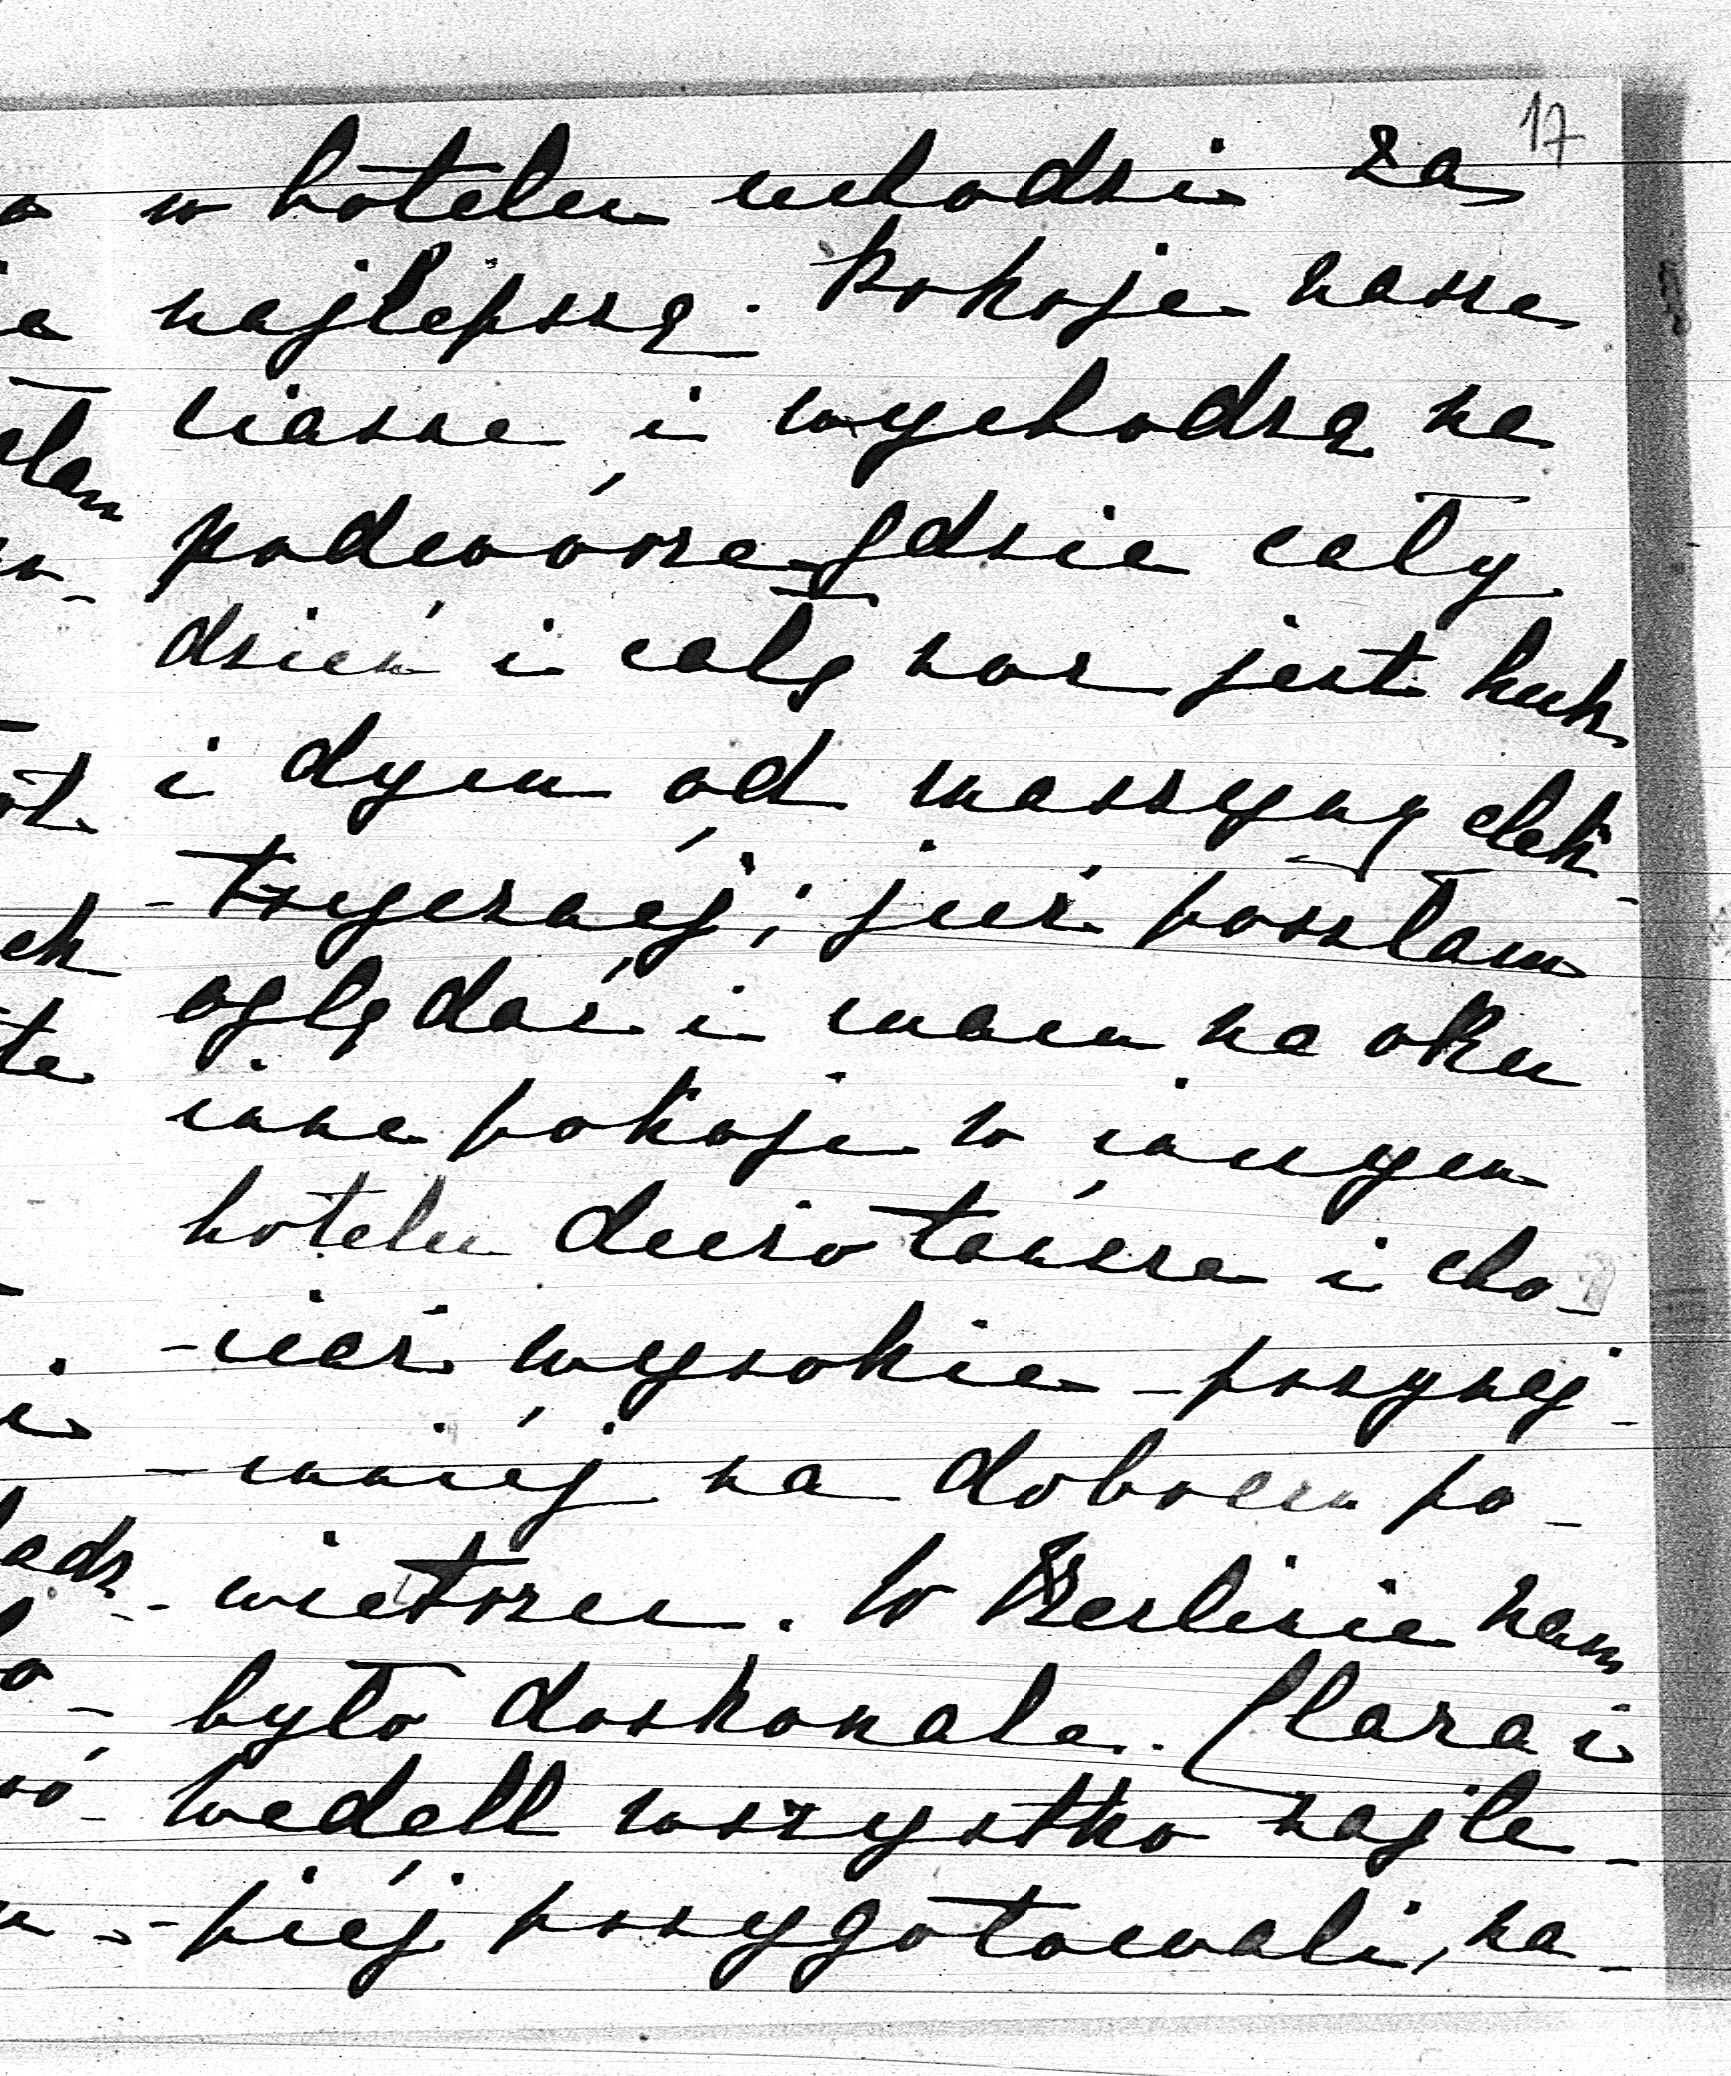 17
w hotelu uchodzi za
najlepszą. Pokoje nasze
ciasne, i wychodzą na
podwórze gdzie cały
dzień i całą noc jest huk
i dym od maszyny elek-
-trycznéj; już poszłam
oglądać i mam na oku
inne pokoje w innym
hotelu dużo tańsze i cho-
-ciaż wysokie - przynaj-
-mniéj na dobrem po-
-wietrzu. W Berlinie nam
było doskonale. Clara i
Wedell wszystko najle-
-piéj przygotowali, na-